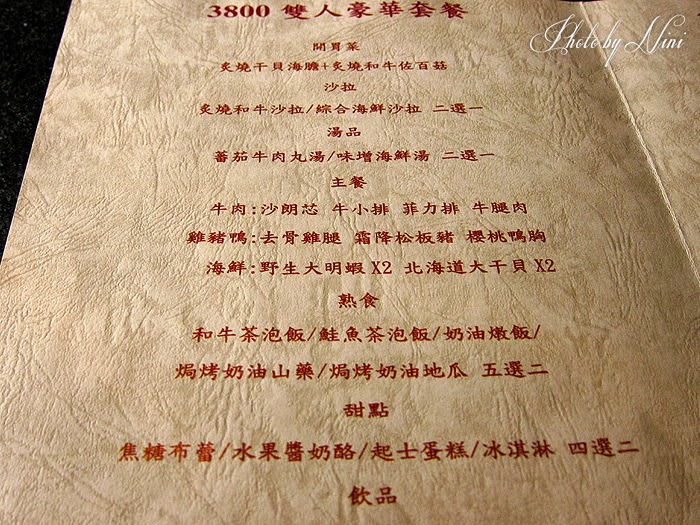 3800 雙人豪華套餐
Photo by Nini
開胃菜
炙燒干貝海膽+炙燒和牛佐百菇
沙拉
炙燒和牛沙拉/綜合海鮮沙拉 二選一
湯品
蕃茄牛肉丸湯/味增海鮮湯 二選一
主餐
牛肉:沙朗芯 牛小排 菲力排 牛腿肉
雞豬鴨:去骨雞腿 霜降松板豬 櫻桃鴨胸
海鮮:野生大明蝦X2 北海道大干貝X2
熟食
和牛茶泡飯/鮭魚茶泡飯/奶油燉飯/
焗烤奶油山藥/焗烤奶油地瓜 五選二
甜點
焦糖布蕾/水果醬奶酪/起士蛋糕/冰淇淋 四選二
飲品